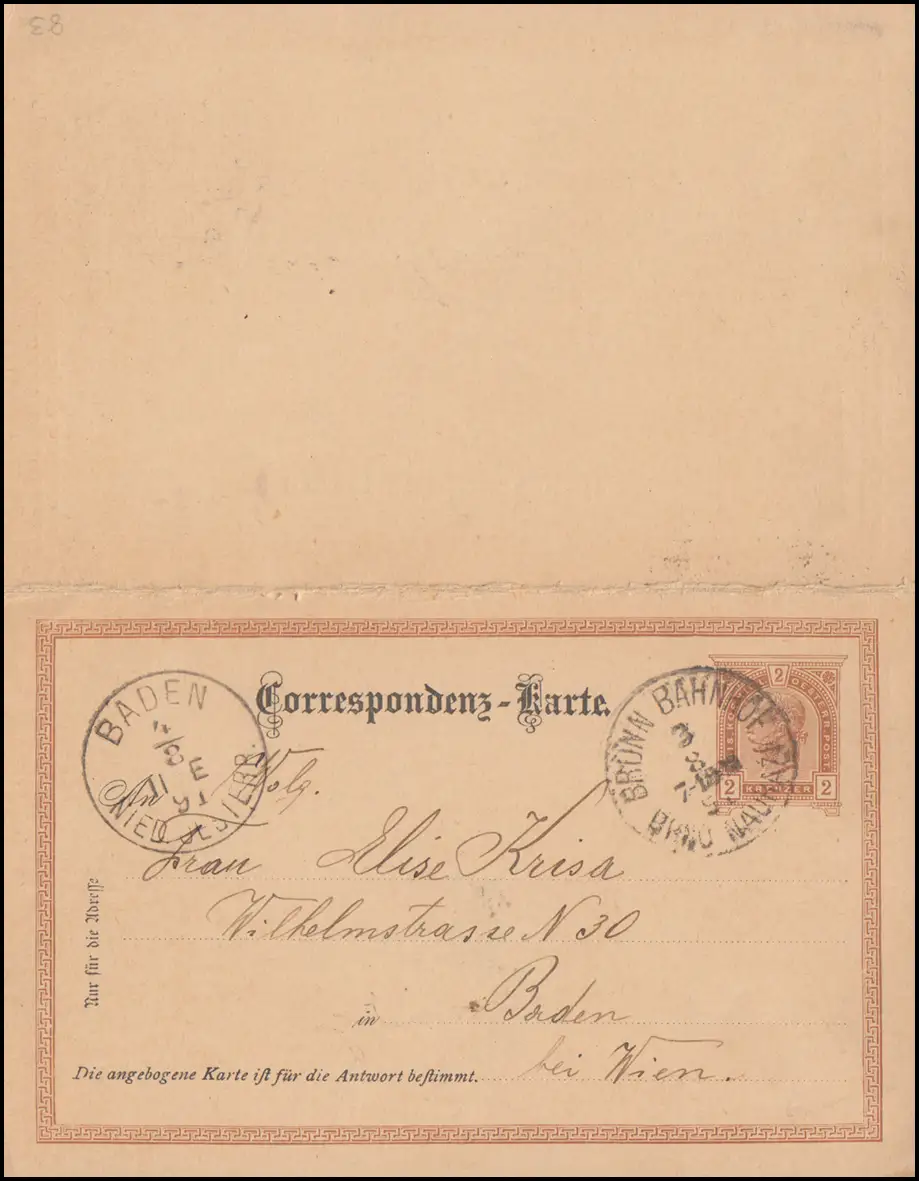 83
Correspondenz-Karte.
2
2 KREUZER 2
BRÜNN BAHNHOF
3
8
BRNO NÁDR
BADEN
4/8
11 E
91
NIED. OESTERR.
An Wolg.
Frau Elise Krisa
Wilhelmstrasse N 30
in Baden
bei Wien.
Nur für die Adresse
Die angebogene Karte ist für die Antwort bestimmt.